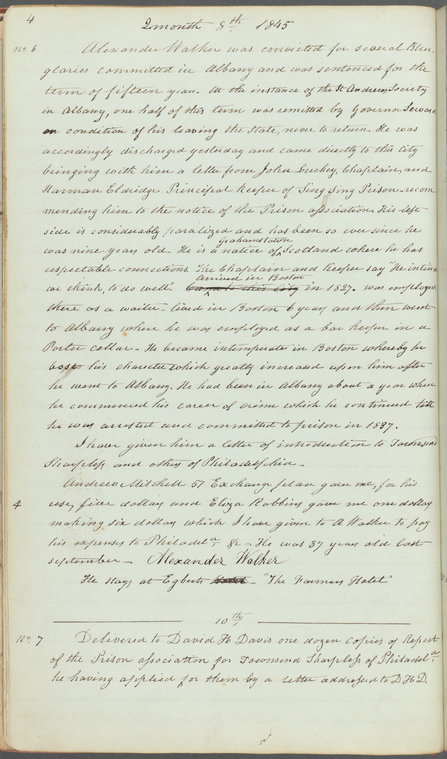 4
2 month 8th 1845
No. 6 Alexander Walker was convicted for several Bur-
glaries committed in Albany and was sentenced for the
term of fifteen years. At the instance of the St Andrews Society
in Albany, one half of this term was remitted by Governor Seward
on condition of his leaving the State, never to return. He was
accordingly discharged yesterday and came directly to this City
bringing with him a letter from John Luckey, Chaplain, and
Harman Eldridge Principal Keeper of Sing Sing Prison - recom
mending him to the notice of the Prison Association. His left
side is considerably paralized and has been so ever since he
was nine years old. He is a native of Grahamstation Scotland where he has
respectable connections. The Chaplain and Keeper say "He intends
we think, to do well. Came to this City Arrived in Boston in 1827. was employed
there as a waiter - lived in Boston 6 years and then went
to Albany where he was employed as a bar keeper in a
Porter cellar - He became intemperate in Boston whereby he
lost his character which greatly increased upon him after
he went to Albany. He had been in Albany about a year when
he commenced his career of crime which he continued till
he was arrested and committed to prison in 1837.
I have given him a letter of introduction to Townsend
Sharpless and others of Philadelphia -
Andrew Mitchell 57 Exchange place gave me, for his
4 use, five dollars and Eliza Robbins gave me one dollar
making six dollars which I have given to A Walker to pay
his expenses to Philadela. &c - He was 37 years old last
september - Alexander Walker
He stays at Egberts - "The Farmers Hotel"
10th
No. 7 Delivered to David H Davis one dozen copies of Report
of the Prison association for Townsend Sharpless of Philadela.
he having applied for them by a letter addressed to D. H. D.